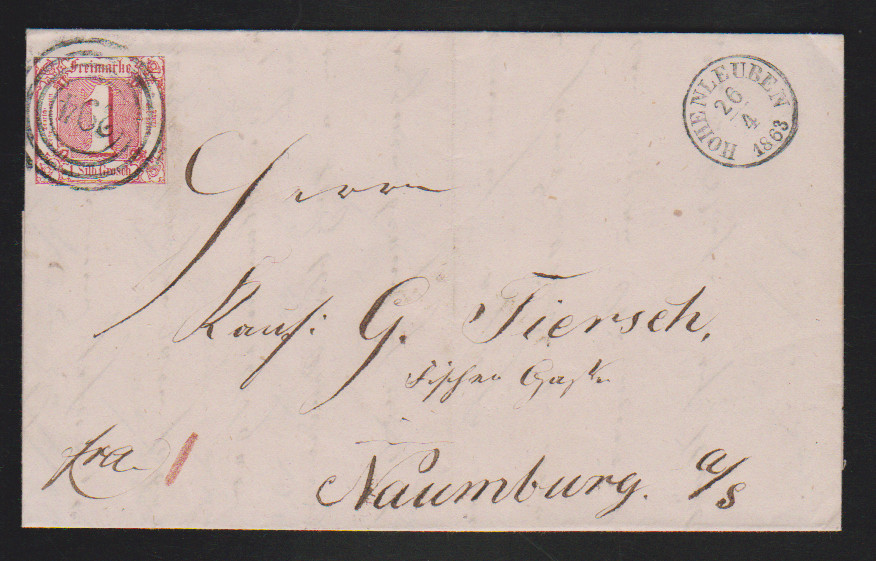 Freimarke
1
1 Silb. Grosch
HOHENLEUBEN
26/4
1863
Herrn
Kauf: G. Tiersch,
Fischer Gasse
fra. /
Naumburg. a/s